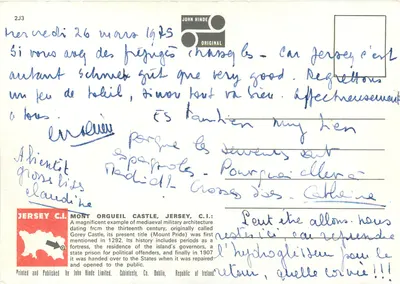 2J3
JOHN HINDE
ORIGINAL
Mercredi 26 mars 1975
Si vous avez des préjugés chassez-les - car Jersey c'est
autant Schmek gut que very good. Regrettons
un peu de soleil, sinon tout va bien. affectueusement
à tous.
Es tambien muy bien
porque les servents sont
espagnoles. Pourquoi aller à
Madrid Grosses bises. Catherine
A bientôt
grosses bises
Claudine
Peut être allons-nous
rester ici car reprendre
l'hydroglisseur pour le
retour, quelle corvée !!!
JERSEY C.I.
MONT ORGUEIL CASTLE, JERSEY, C.I.:
A magnificent example of mediaeval military architecture
dating from the thirteenth century, originally called
Gorey Castle, its present title (Mount Pride) was first
mentioned in 1292. Its history includes periods as a
fortress, the residence of the island's governors, a
state prison for political offenders, and finally in 1907
it was handed over to the States when it was repaired
and opened to the public.
Printed and Published by John Hinde Limited, Cabinteely, Co. Dublin, Republic of Ireland